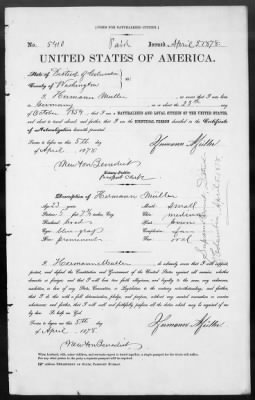 [FORM FOR NATURALIZED CITIZEN.]
No. 5410 Paid Issued April 5 1878
UNITED STATES OF AMERICA.
State of District of Columbia
County of Washington
I, Hermann Müller, do swear that I was born
in Germany, on or about the 28th day
of October 1854; that I am a NATURALIZED AND LOYAL CITIZEN OF THE UNITED STATES,
and about to travel abroad; and further, that I am the IDENTICAL PERSON described in the Certificate
of Naturalization herewith presented.
Sworn to before me this 5th day
of April 1878
Hermann Müller
Newton Benedict
Notary Public
Description of Hermann Müller
Age: 23 years
Stature: 5 feet
Forehead: broad
Eyes: blue-gray
Nose: prominent
Mouth: small
Chin: medium
Hair: brown
Complexion: fair
Face: oval
I, Hermann Müller, do solemnly swear that I will support,
protect, and defend the Constitution and Government of the United States against all enemies, whether
domestic or foreign; and that I will bear true faith, allegiance, and loyalty to the same, any ordinance,
resolution, or law of any State, Convention, or Legislature to the contrary notwithstanding; and further,
that I do this with a full determination, pledge, and purpose, without any mental reservation or evasion
whatsoever; and further, that I will well and faithfully perform all the duties which may be required of me
by law. So help me God.
Sworn to before me this 5th day
of April 1878
Hermann Müller
Newton Benedict